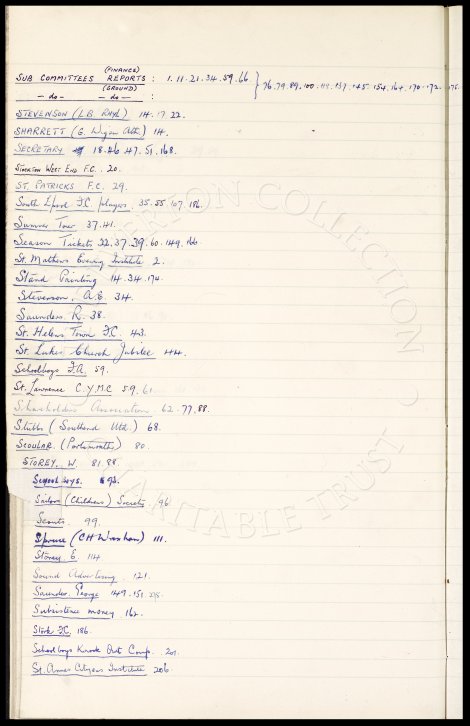 (FINANCE)
SUB COMMITTEES REPORTS : 1. 11. 21. 34. 59. 66 } 76. 79. 89. 100. 137. 145. 154. 164. 170. 172.
(GROUND)
— do — — do — :
STEVENSON (L.B. RHYL) 14. 17. 22.
SHARRETT (G. Wigan Ath.) 14.
SECRETARY 18. 46. 47. 51. 168.
STOCKTON WEST END F.C. . 20.
ST. PATRICKS F.C. 29.
South Lpool F.C. players . 35. 55. 107. 186.
Summer Tour 37. 41.
Season Tickets 22. 37. 39. 60. 149. 166
St. Mathews Evening Institute 2.
Stand Painting 14. 34. 174.
Stevenson, A.E. 34.
Saunders R. 38.
St. Helens Town F.C. 43.
St. Lukes Church Jubilee 44.
Schoolboys F.A. 59.
St. Lawrence C.Y.M.C. 59. 61.
Shareholders Association . 62. 77. 88.
Stubbs (Southend Utd.) 68.
SCOULAR. (Portsmouth) 80.
STOREY. W. 81. 88.
School boys. 93.
Sailors (Childrens) Society 96
Scouts. 99.
Spruce (CH Wrexham) 111.
Storey E. 114
Sound Advertising . 121.
Saunders. George 149. 151.
Subsistence money . 162.
Stork F.C. 186.
Schoolboys Knock Out Comp. 201.
St. Annes Citizens Institute 206.
EVERTON COLLECTION
CHARITABLE TRUST